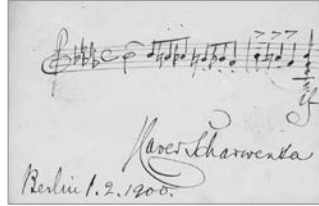 Xaver Scharwenka
Berlin 1.2.1900.